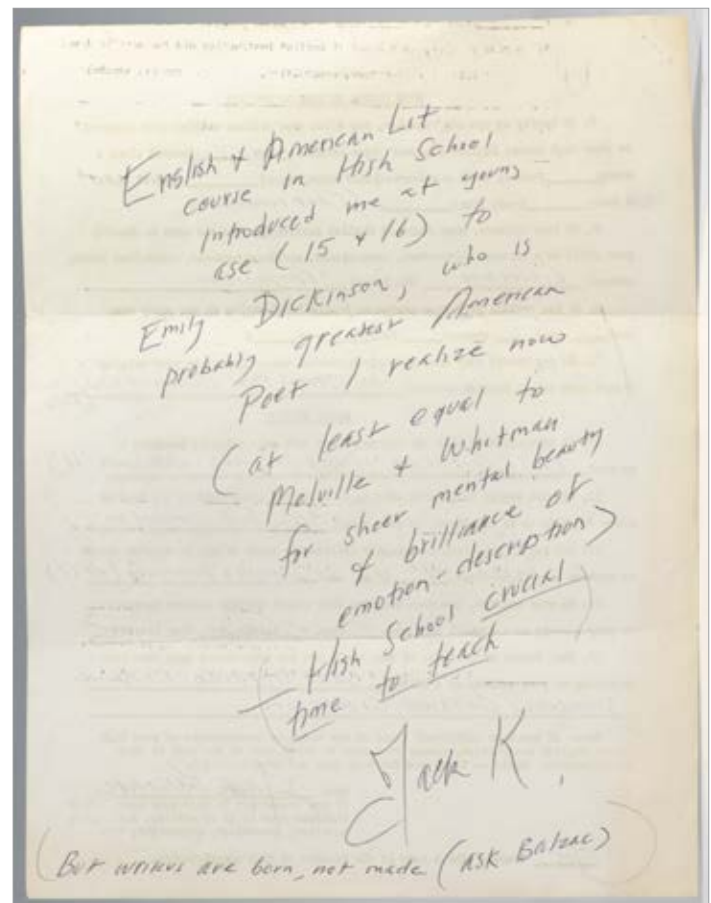 English + American Lit
course in High School
introduced me at young
age (15 + 16) to
Emily Dickinson, who is
probably greatest American
Poet I realize now
(at least equal to
Melville + Whitman
for sheer mental beauty
+ brilliance of
emotion-description)
— High School crucial
time to teach
Jack K.
(But writers are born, not made (ask Balzac)